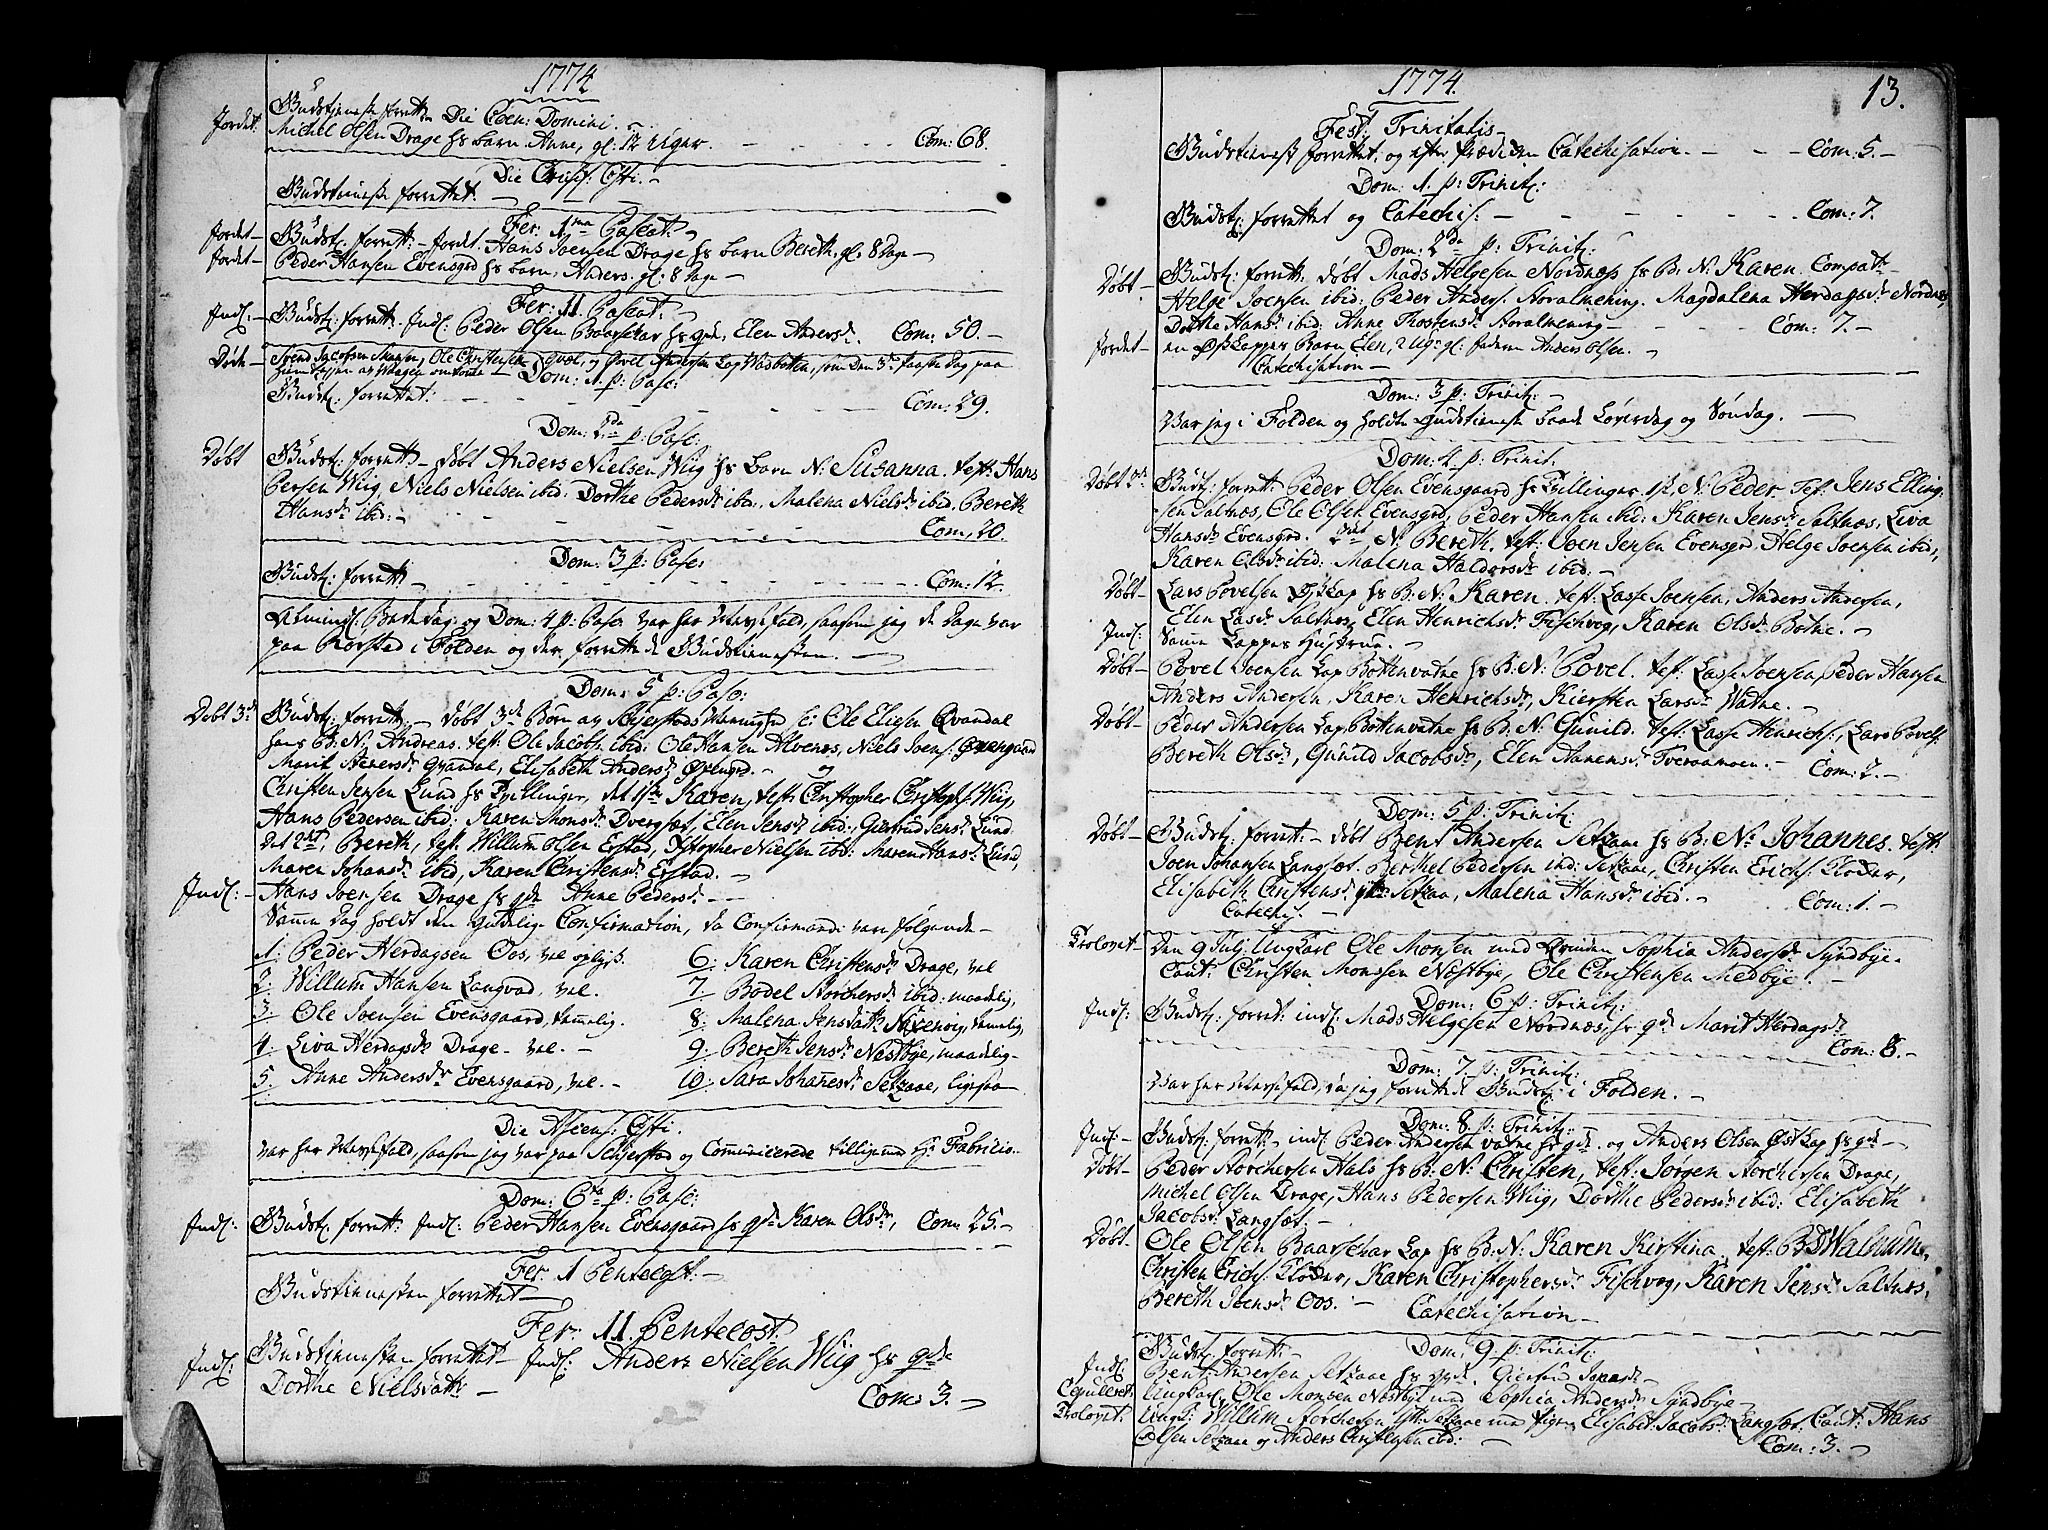 1774
Gudstienesten forrett. Die Coen: Domini.
Jordet: Michel Olsen Drage hs barn Anne, gl: 12 Uger. Com: 68.
Die Crucif: Xsti.
Gudstienesten forrettet.
Fer: 1ma Pascat:
Jordet Gudstj: forrett: - Jordet. Hans Joensen Drage hs barn Bereth. gl: 8 Dage -
Jordet Peder Hansen Evensgrd hs barn, Anders. gl: 8 Dage -
Fer: II Pascat:
Indl: - Gudstj: forrett: Indl: Peder Olsen Baarschar hs qde, Elen Andersd. Com: 50. -
Døde - Svend Jacobsen Skansen, Ole Christensen Qvæl, og Povel Andersen Lap Wasbotten, som den 3de Paaske Dag paa
hiem Rejsen af Waagen omkomne - Dom: 1. p: Pasc:
Gudstj: forrettet: Com: 29.
Dom: 2da p: Pasc:
Døbt Gudstj: forrett: - Døbt Anders Nielsen Wiig hs barn N: Susanna. test: Hans
Persen Wiig, Niels Nielsen ibid: Dorthe Pedersd: ibid:, Malena Nielsd: ibid, Bereth
Hansd: ibid: -
Com: 20.
Dom: 3 p: Pasc:
Gudstj: forrett: Com: 12.
Almindl: Bededag: og Dom: 4 p: Pasc: var her Messefald, saasom jeg de Dage var
paa Rørstad i Folden og der forrettede Gudstienesten.
Dom: 5 p: Pasc:
Døbt 3de Gudstj: forrett: - Døbt 3de Børn af Schierstads Menighed Ole Elisen Qvandal
hans B: N: Andreas. test: Ole Jacobs: ibid: Ole Hansen Alvenes, Niels Joens: Øvengaard
Marit Steners: Qvandal, Elisabeth Andersd: Øvengrd. - og
Christen Jensen Lund hs Tvillinger, det 1ste Karen, test: Christopher Christophs: Wiig,
Hans Pedersen ibid: Karen Monsd: Dvergset, Elen Jensd: ibid: Giertrud Jensd: Lund.
Det 2det, Bereth, test: Willum Olsen Erstad, Xstopher Nielsen ibid: Maren Hansd: Lund,
Maren Johansd: ibid, Karen Christensd: Erstad.
Indl: - Hans Joensen Drage hs qde Anne Pedersd: -
Samme Dag holdt den Gudelig Confirmation, da Confirmandi var følgende -
1: Peder Herdagsen Oos, vel oplyst.
2. Willum Hansen Langvad, vel.
3. Ole Joensen Evensgaard, temmelig.
4. Liva Herdagsd: Drage - vel. -
5. Anne Andersd: Evensgaard, vel. -
6: Karen Christensd: Drage, vel
7. Bodel Storchersd: ibid: maadelig,
8: Malena Jensdatt: Saxenvig, temelig,
9: Bereth Jensd: Næstbye, maadelig -
10: Sara Johanesd: Setzaae, ligesaa
Die Ascens: Xsti.
var her Messefald, saasom jeg var paa Schierstad og Communicerede tilligemed Hr Fabricio.
Dom: 6ta p: Pasc:
Indl: Gudstj: forrett: Indl: Peder Hansen Evensgaard hs qde Karen Olsd:, Com: 25. -
Fer: 1 Pentecost: -
Gudstienesten forrettet -
Fer: II. Pentecost:
Indl: Gudstienesten forrettet - Indl: Anders Nielsen Wiig hs qde
Dorthe Nielsdatt: - Com: 3. -
1774. 13.
Fest: Trinitatis -
Gudstienest forrettet, og efter Prædiken Catechisation. Com: 5. -
Dom: 1. p: Trinit:
Gudstj: forrettet og Catechis: Com: 7.
Dom: 2da p: Trinit:
Døbt - Gudstj: forrett: døbt Mads Helgesen Nordnæs hs B: N: Karen. Compatr -
Helge Joensen ibid: Peder Anders: Storalmening. Magdalena Herdagsd: Nordnæs,
Dorthe Hansd: ibid: Anne Thostensd: Storalmening - Com: 7. -
Jordet - en Øst Lappes Barn Elen, 2 Ug: gl: faderen Anders Olsen.
Catechisation -
Dom: 3 p: Trinit:
Var jeg i Folden og holdte Gudstienest baade Løverdag og Søndag.
Dom: 4 p: Trinit.
Døbt 3de Gudstj: forrett: Peder Olsen Evensgaard hs Tvillinger. 1st, N: Peder. Test: Jens Elling-
sen Saltnæs, Ole Olsen Evensgrd, Peder Hansen ibid: Karen Jensd: Saltnæs, Liva
Hansd: Evensgrd. 2det N: Bereth. test: Joen Jensen Evensgrd. Helge Joensen ibid:,
Karen Olsd: ibid: Malena Haldorsd: ibid: -
Døbt - Lars Povelsen Østlap hs B: N: Karen. test: Lasse Joensen, Anders Andersen,
Elen Lasd: Saltnæs, Elen Henrichsd: Fischvog, Karen Olsd: Botne. -
Indl: - Samme Lappes Hustrue.
Døbt - Povel Joensen Lap Bottenvatne hs B: N: Povel. test: Lasse Joensen, Peder Hansen
Anders Andersen, Karen Henrichsd:, Kiersten Larsd: Watne. -
Døbt - Peder Andersen Lap Bottenvatne hs B: N: Gunild. test: Lasse Henrichs:, Lars Povels:
Bereth Olsd:, Gunild Jacobsd:, Elen Arnensd: Tveraamoen. - Com: 2. -
Dom: 5 p: Trinit:
Døbt - Gudstj: forrett: - døbt Bent Andersen Setzaae hs B: N: Johannes. test:
Joen Johansen Langset. Berthel Pedersen ibid: Setzaae, Christen Erichs: Kloder,
Elisabeth Christensd: Setzaa, Malena Hansd: ibid. - Com: 1. -
Catechis: -
Trolovet - den 9 Julj Ungkarl Ole Monsen med Qvinden Sophia Andersd: Syndbye.
Caut: Christen Monssen Næstbye, Ole Christensen Medbye. -
Dom: 6 p: Trinit:
Indl: Gudstj: forrett: indl: Mads Helgesen Nordnæs, hs qde Marit Herdagsd:
Com: 8. -
Dom: 7. p: Trinit:
Var her Messefald, da jeg forrettede Gudstj: i Folden. -
Dom: 8 p: Trinit:
Indl: - Gudstj: forrett: - indl: Peder Andersen Vatne hs qde og Anders Olsen Øst Lap hs qde -
Døbt - Peder Storchersen Hals hs B: N: Christen, test: Jørgen Storchersen Drage,
Michel Olsen Drage, Hans Pedersen Wiig, Dorthe Pedersd: ibid: Elisabeth
Jacobsd: Langset. -
Døbt - Ole Olsen Baarschar Lap hs B: N: Karen Kirstina. test: B: D: Walnum,
Christen Erichs: Kloder, Karen Christophersd: Fischvog, Karen Jensd: Saltnæs,
Bereth Joensd: Oos. - Catechisation -
Gudstj: forrett: - Dom: 9 p: Trinit:
Indl: Bent Andersen Setzaae hs qde. Giertrud Jonasd: -
Copulleret: Ungkarl Ole Monsen Næstbye med Sophia Andersd: Syndbye -
Trolovet. Ungk: Willum Storchersen Setzaae med Pigen Elisab: Jacobsd: Langset. Caut: Hans
Olsen Setzaae og Anders Christensen ibid: - Com: 3. -